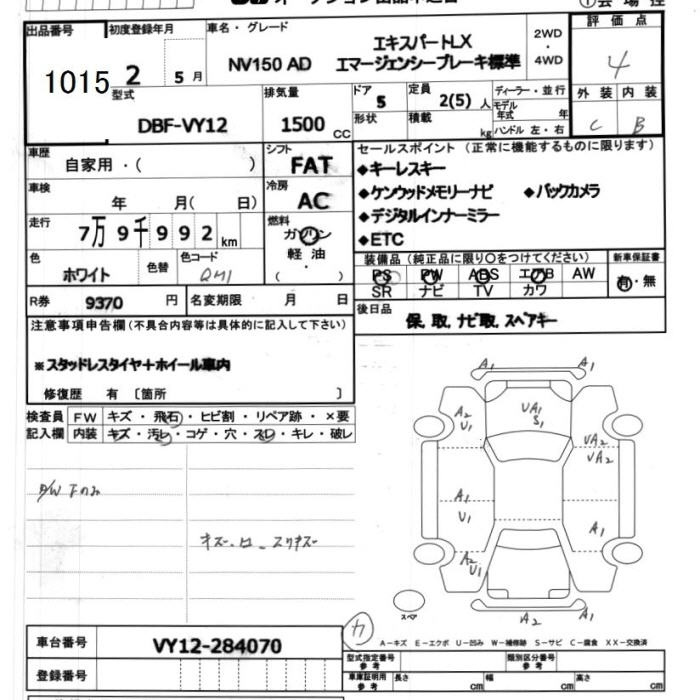 出品番号 初度登録年月 車名・グレード 2WD ・ 4WD 評価点
1015 2 5月 NV150 AD エキスパートLX エマージェンシーブレーキ標準 4
型式 排気量 ドア 定員 ディーラー・並行 外装 内装
DBF-VY12 1500 CC 5 2(5)人 モデル年式 年 C B
形状 積載 kg ハンドル 左・右
車歴 自家用・( ) シフト FAT セールスポイント (正常に機能するものに限ります)
◆キーレスキー
車検 年 月( 日) 冷房 AC ◆ケンウッドメモリーナビ ◆バックカメラ
◆デジタルインナーミラー
走行 7万9千992km 燃料 ガソリン 軽油 ・ ( ) ◆ETC
色 ホワイト 色替 色コード QM1 装備品 (純正品に限り○をつけてください) 新車保証書
PS PW ABS エアB AW 有・無
SR ナビ TV カワ
R券 9370 円 名変期限 月 日 後日品
保,取,ナビ取,スペアキー
注意事項申告欄(不具合内容等は具体的に記入して下さい)
※スタッドレスタイヤ+ホイール車内
修復歴 有 〔箇所 〕
検査員 FW キズ・飛石・ヒビ割・リペア跡・×要
記入欄 内装 キズ・汚レ・コゲ・穴・スレ・キレ・破レ
A1 A1
A2 U1 UA1 S1 UA2 UA2
A1 U1 A1
A2 U1
スペア A2 A1
カ A-キズ E-エクボ U-凹み W-補修跡 S-サビ C-腐食 XX-交換済
車台番号 VY12-284070
型式指定番号 参考 類別区分番号 参考
登録番号 車庫証明用 参考 長さ cm 幅 cm 高さ cm